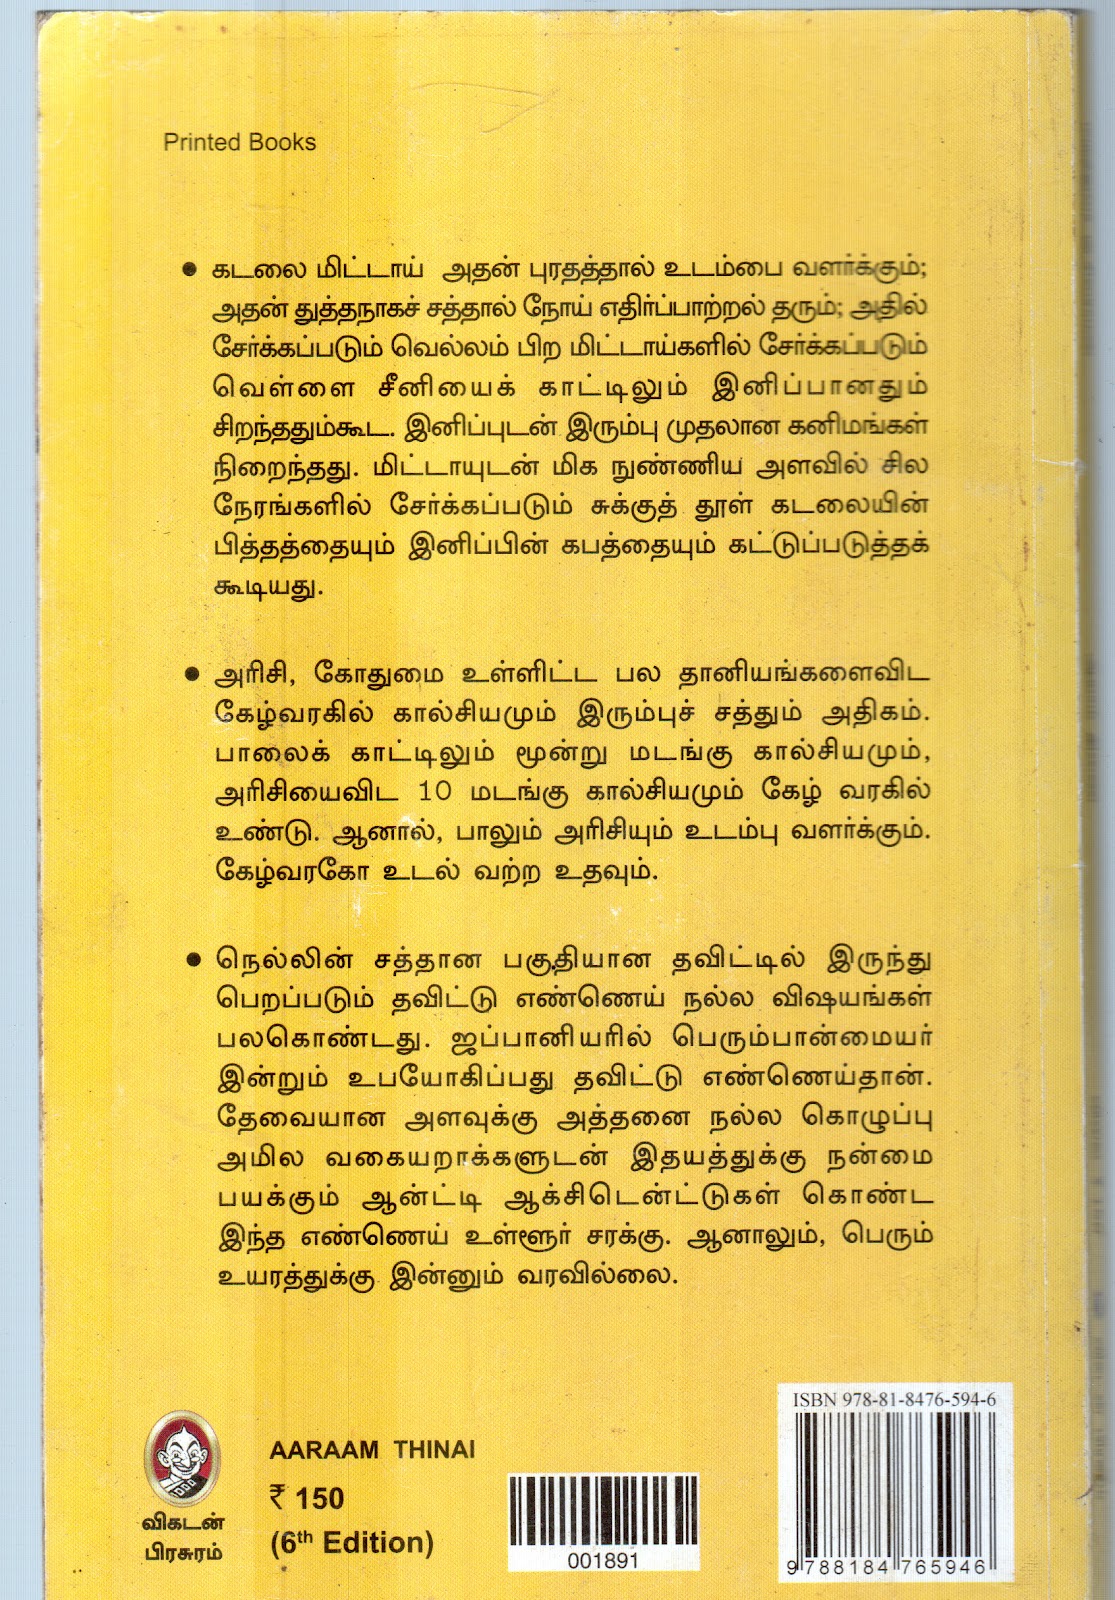 Printed Books
● கடலை மிட்டாய் அதன் புரதத்தால் உடம்பை வளர்க்கும்;
அதன் துத்தநாகச் சத்தால் நோய் எதிர்ப்பாற்றல் தரும்; அதில்
சேர்க்கப்படும் வெல்லம் பிற மிட்டாய்களில் சேர்க்கப்படும்
வெள்ளை சீனியைக் காட்டிலும் இனிப்பானதும்
சிறந்ததும்கூட. இனிப்புடன் இரும்பு முதலான கனிமங்கள்
நிறைந்தது. மிட்டாயுடன் மிக நுண்ணிய அளவில் சில
நேரங்களில் சேர்க்கப்படும் சுக்குத் தூள் கடலையின்
பித்தத்தையும் இனிப்பின் கபத்தையும் கட்டுப்படுத்தக்
கூடியது.
● அரிசி, கோதுமை உள்ளிட்ட பல தானியங்களைவிட
கேழ்வரகில் கால்சியமும் இரும்புச் சத்தும் அதிகம்.
பாலைக் காட்டிலும் மூன்று மடங்கு கால்சியமும்,
அரிசியைவிட 10 மடங்கு கால்சியமும் கேழ் வரகில்
உண்டு. ஆனால், பாலும் அரிசியும் உடம்பு வளர்க்கும்.
கேழ்வரகோ உடல் வற்ற உதவும்.
● நெல்லின் சத்தான பகுதியான தவிட்டில் இருந்து
பெறப்படும் தவிட்டு எண்ணெய் நல்ல விஷயங்கள்
பலகொண்டது. ஜப்பானியரில் பெரும்பான்மையர்
இன்றும் உபயோகிப்பது தவிட்டு எண்ணெய்தான்.
தேவையான அளவுக்கு அத்தனை நல்ல கொழுப்பு
அமில வகையறாக்களுடன் இதயத்துக்கு நன்மை
பயக்கும் ஆன்ட்டி ஆக்சிடென்ட்டுகள் கொண்ட
இந்த எண்ணெய் உள்ளூர் சரக்கு. ஆனாலும், பெரும்
உயரத்துக்கு இன்னும் வரவில்லை.
விகடன்
பிரசுரம்
AARAAM THINAI
₹ 150
(6th Edition)
001891
ISBN 978-81-8476-594-6
9 788184 765946